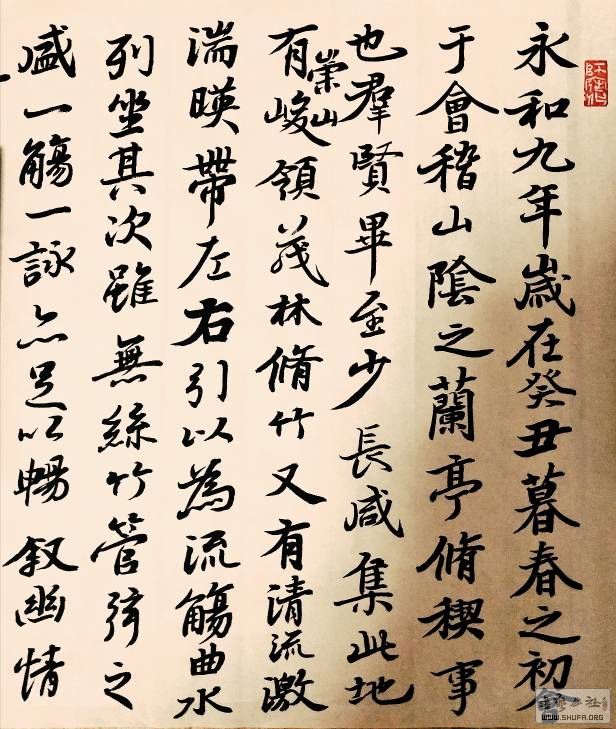 永和九年歲在癸丑暮春之初會
于會稽山陰之蘭亭脩稧事
也羣賢畢至少長咸集此地
有崇山峻領茂林脩竹又有清流激
湍暎帶左右引以為流觴曲水
列坐其次雖無絲竹管弦之
盛一觴一詠亦足以暢叙幽情
WWW.SHUFA.ORG